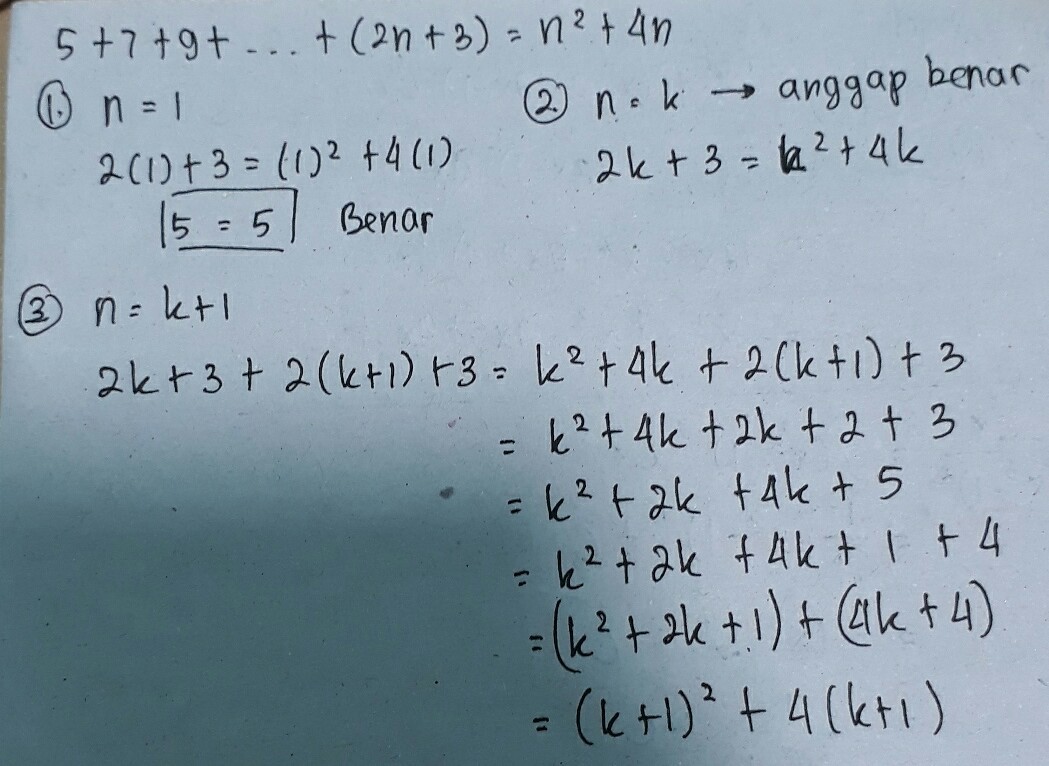 5 + 7 + 9 + ... + (2n + 3) = n² + 4n
① n = 1
2(1) + 3 = (1)² + 4(1)
5 = 5 Benar
② n = k → anggap benar
2k + 3 = k² + 4k
③ n = k+1
2k + 3 + 2(k+1) + 3 = k² + 4k + 2(k+1) + 3
= k² + 4k + 2k + 2 + 3
= k² + 2k + 4k + 5
= k² + 2k + 4k + 1 + 4
= (k² + 2k + 1) + (4k + 4)
= (k+1)² + 4(k+1)